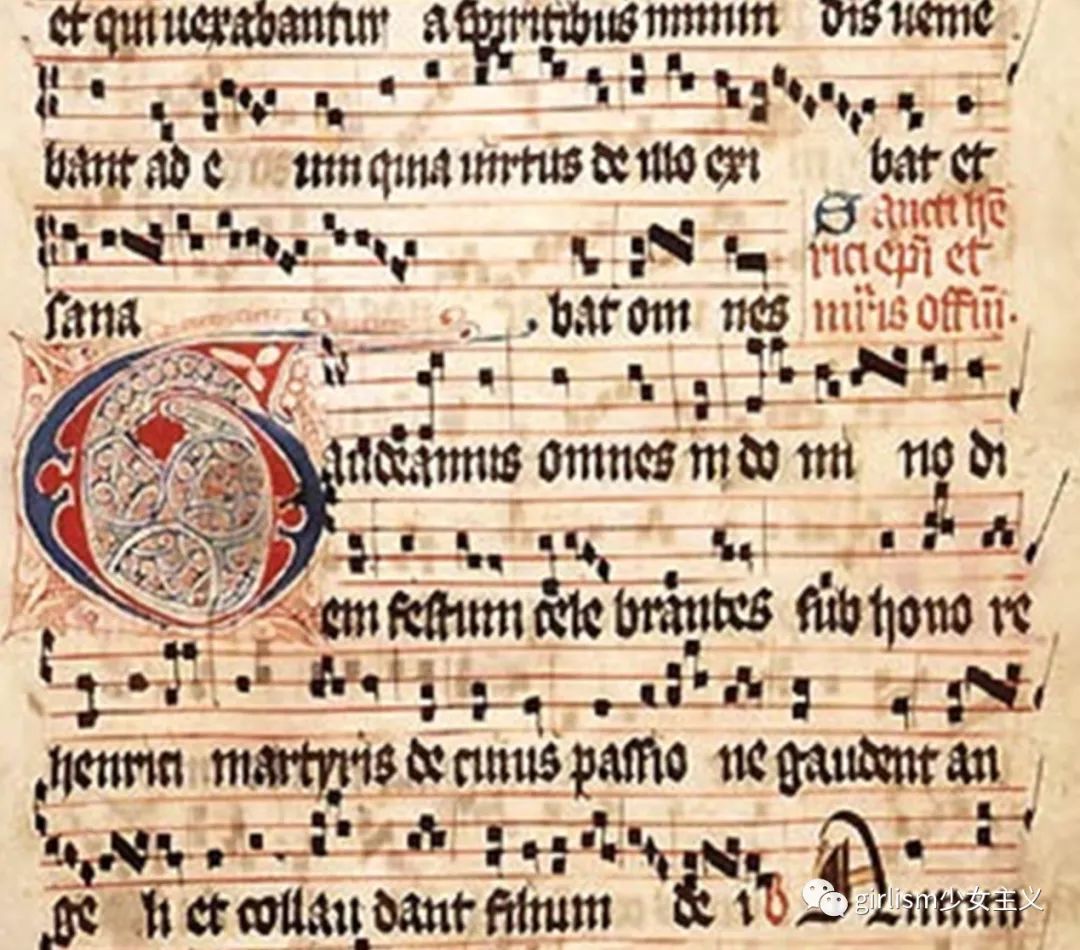 et qui uexabantur a spiritibus inmun dis uenie
bant ad e um quia uirtus de illo exi bat et
sana bat om nes
Sancti hē
rici epī et
mr̄is offm̄.
Gaudeamus omnes in do mi no di
em festum cele brantes sub hono re
henrici martyris de cuius passio ne gaudent an
ge li et collau dant filium de i
girlism少女主义